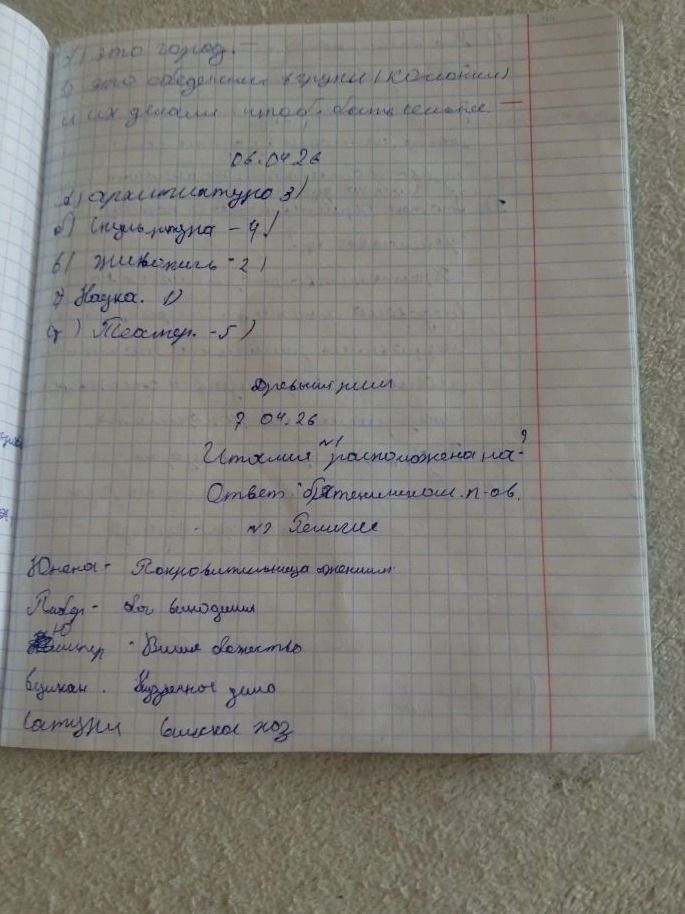 а) это город. —
б это обеденения в групы (колонии)
и их делали чтоб. быть —
06.04.26
а) архитиктура 3)
б) Скульптура - 4)
в) живопись - 2)
г Наука. 1)
д) Театр. - 5)
Древний рим
7 04.26
№1
Италия расположена на - ?
Ответ: п-ов.
№2 Религия
Юнена - Покровительница женщин
бог виноделия
Ю
- божество
вулкан. Кузнечное дело
Сатурн Сельское хоз